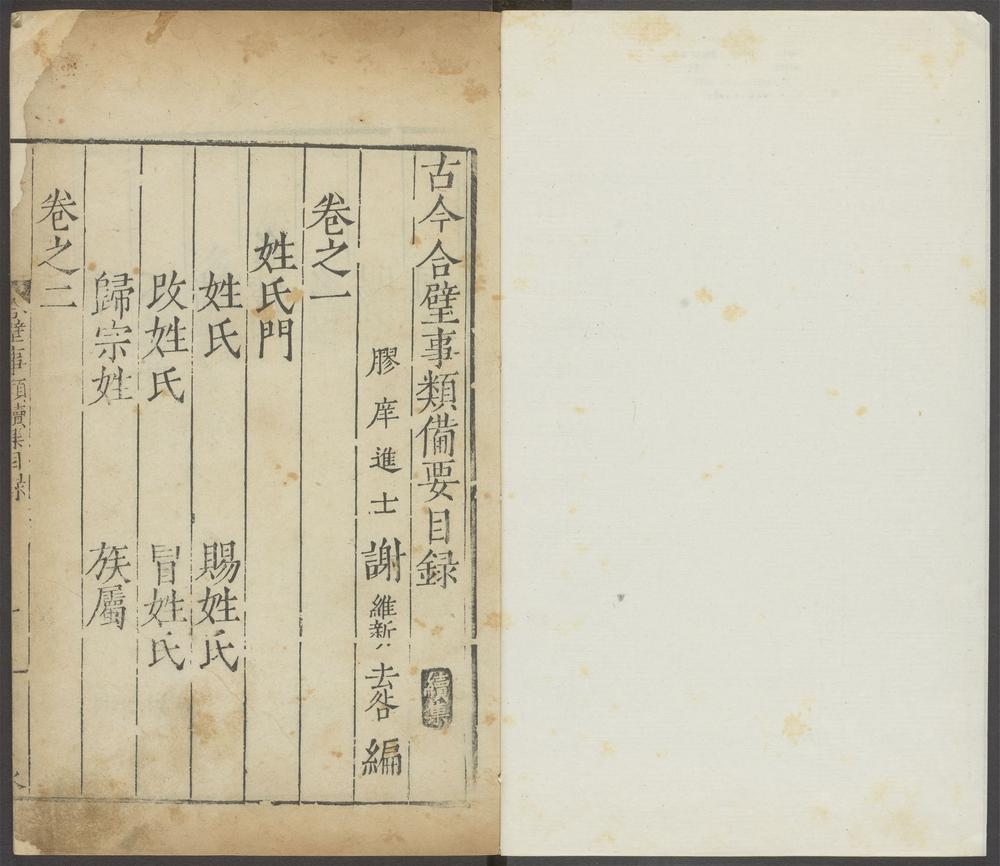 古今合璧事類備要目録 續集
膠庠進士謝維新去咎編
卷之一
姓氏門
姓氏 賜姓氏
改姓氏 冒姓氏
歸宗姓 族屬
卷之二
合璧事類續集目録